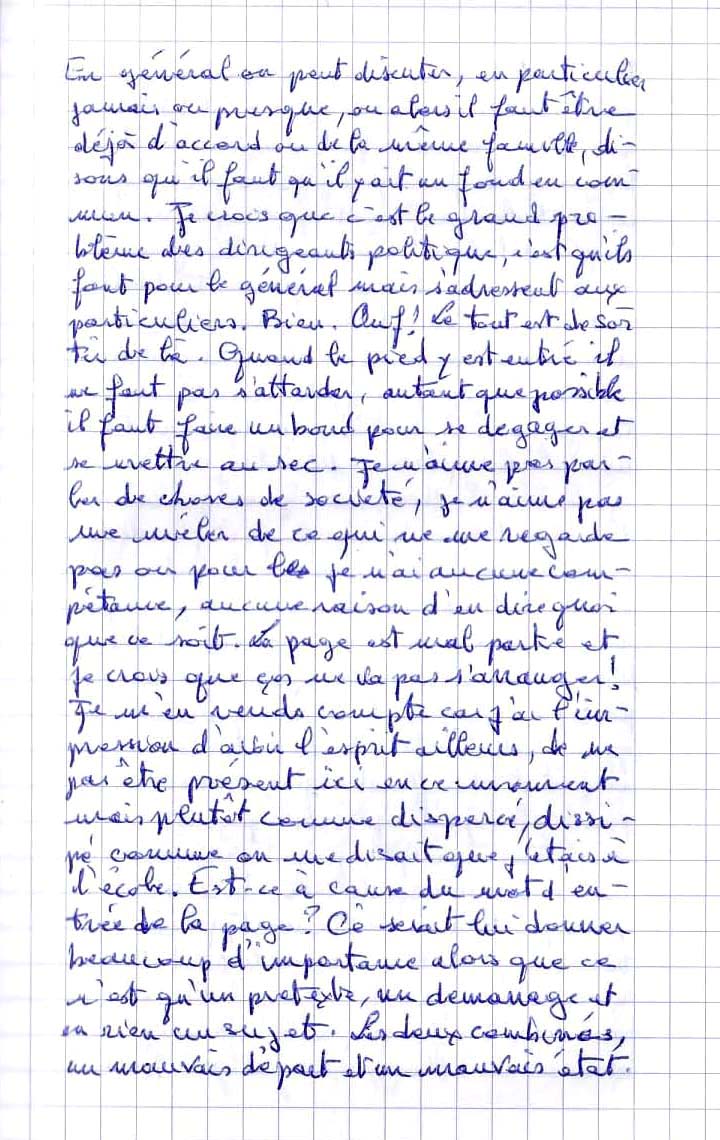 En général on peut discuter, en particulier
jamais ou presque, ou alors il faut être
déjà d'accord ou de la même famille, di-
sons qu'il faut qu'il y ait un fond en com-
mun. Je crois que c'est le grand pro-
blème des dirigeants politique, c'est qu'ils
font pour le général mais s'adressent aux
particuliers. Bien. Ouf! Le tout est de sor
tir de là. Quand le pied y est entré il
ne faut pas s'attarder, autant que possible
il faut faire un bond pour se dégager et
se mettre au sec. Je n'aime pas par-
ler de choses de société, je n'aime pas
me mêler de ce qui ne me regarde
pas ou pour les je n'ai aucune com-
pétance, aucune raison d'en dire quoi
que ce soit. La page est mal partie et
je crois que ças ne va pas s'arranger!
Je m'en rends compte car j'ai l'im-
pression d'avoir l'esprit ailleurs, de ne
pas être présent ici en ce moment
mais plutôt comme dispercé, dissi-
pé comme on me disait que j'étais à
l'école. Est-ce à cause du mot d'en-
trée de la page? Ce serait lui donner
beaucoup d'importance alors que ce
n'est qu'un pretexte, un démarrage et
en rien un sujet. Les deux combinés,
un mauvais départ et un mauvais état.